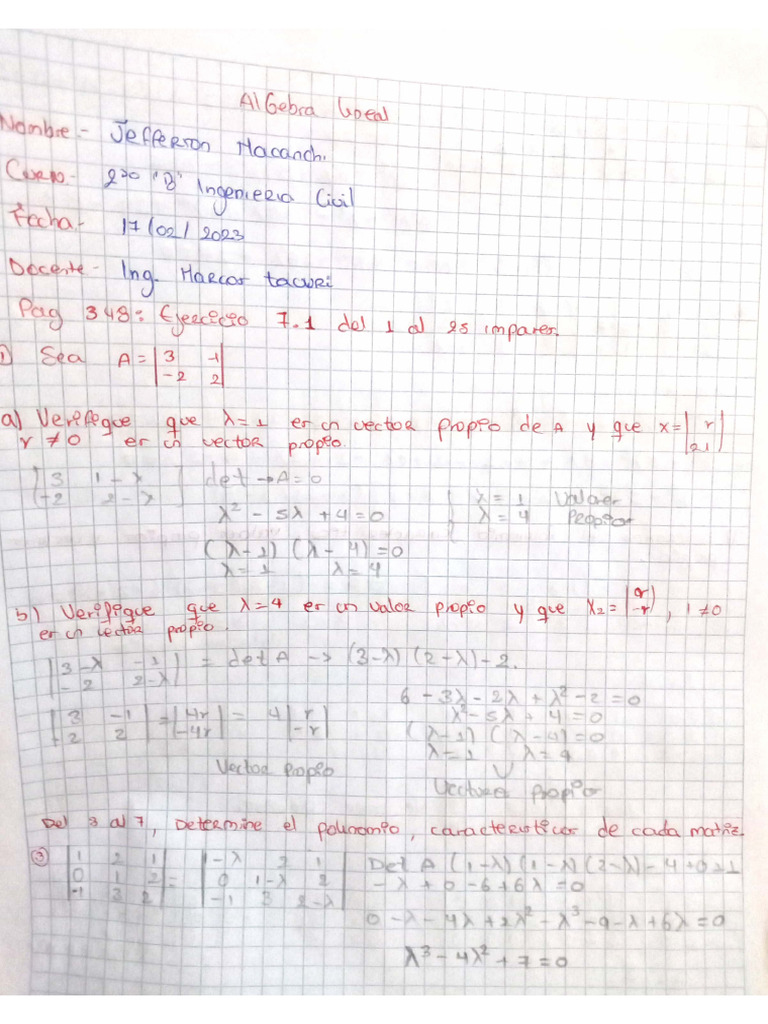 AlGebra Lineal
Nombre - Jefferson Macanchi.
Curso - 2do "B" Ingenieria Civil
Fecha - 17/02/2023
Docente - Ing. Marcos tacuri
Pag 348: Ejercicio 7.1 del 1 al 25 impares.
① Sea A = |3 -1|
|-2 2|
a) Verifique que λ=1 es un vector propio de A y que x = | r |
r ≠ 0 es un vector propio. |21|
|3 1-λ| det → A = 0
|-2 2-λ|
λ² - 5λ + 4 = 0
λ = 1 Valores
λ = 4 Propios
(λ-1) (λ-4) = 0
λ=1 λ=4
b) Verifique que λ=4 es un valor propio y que X₂ = | r |, 1 ≠ 0
|-r|
es un vector propio.
|3-λ -1| = det A → (3-λ) (2-λ) - 2.
|-2 2-λ|
6 - 3λ - 2λ + λ² - 2 = 0
|3 -1| = |4r| = 4 | r |
|2 2| |-4r| |-r|
λ² - 5λ + 4 = 0
(λ-1) (λ-4) = 0
λ=1 λ=4
Vector propio
Vectores propio
Del 3 al 7, Determine el polinomio, caracteristicos de cada matriz
③ |1 2 1| = |-λ 2 1| Det A (1-λ) (1-λ) (2-λ) - 4 + 0 + 1
|0 1 2| |0 1-λ 2| -λ + 0 - 6 + 6λ = 0
|-1 3 2| |-1 3 2-λ|
0 - λ - 4λ + 2λ² - λ³ - 9 - λ + 6λ = 0
λ³ - 4λ² + 7 = 0